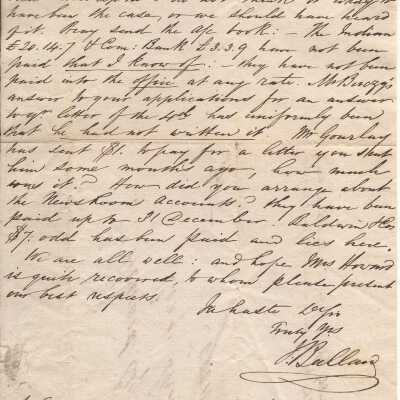 have been the case, or we should have heard
of it. Pray send the a/c book: – the Indian
£20.14.7 & Com: Bank £3.3.9 have not been
paid that I know of: – they have not been
paid into the office at any rate. Mr
answer to your applications for an answer
to yr letter of the 4th has uniformly been
that he had not written it. Mr Gourlay
has sent $1. to pay for a letter you sent
him some months ago, how much
was it? How did you arrange about
the Newsroom Accounts? they have been
paid up to 31 December. Baldwin & Cos
$7. odd has been paid and lies here.
We are all well: and hope Mrs Howard
is quite recovered, to whom please present
our best respects.
In haste Dr Sir
Truly Yrs
Bullard